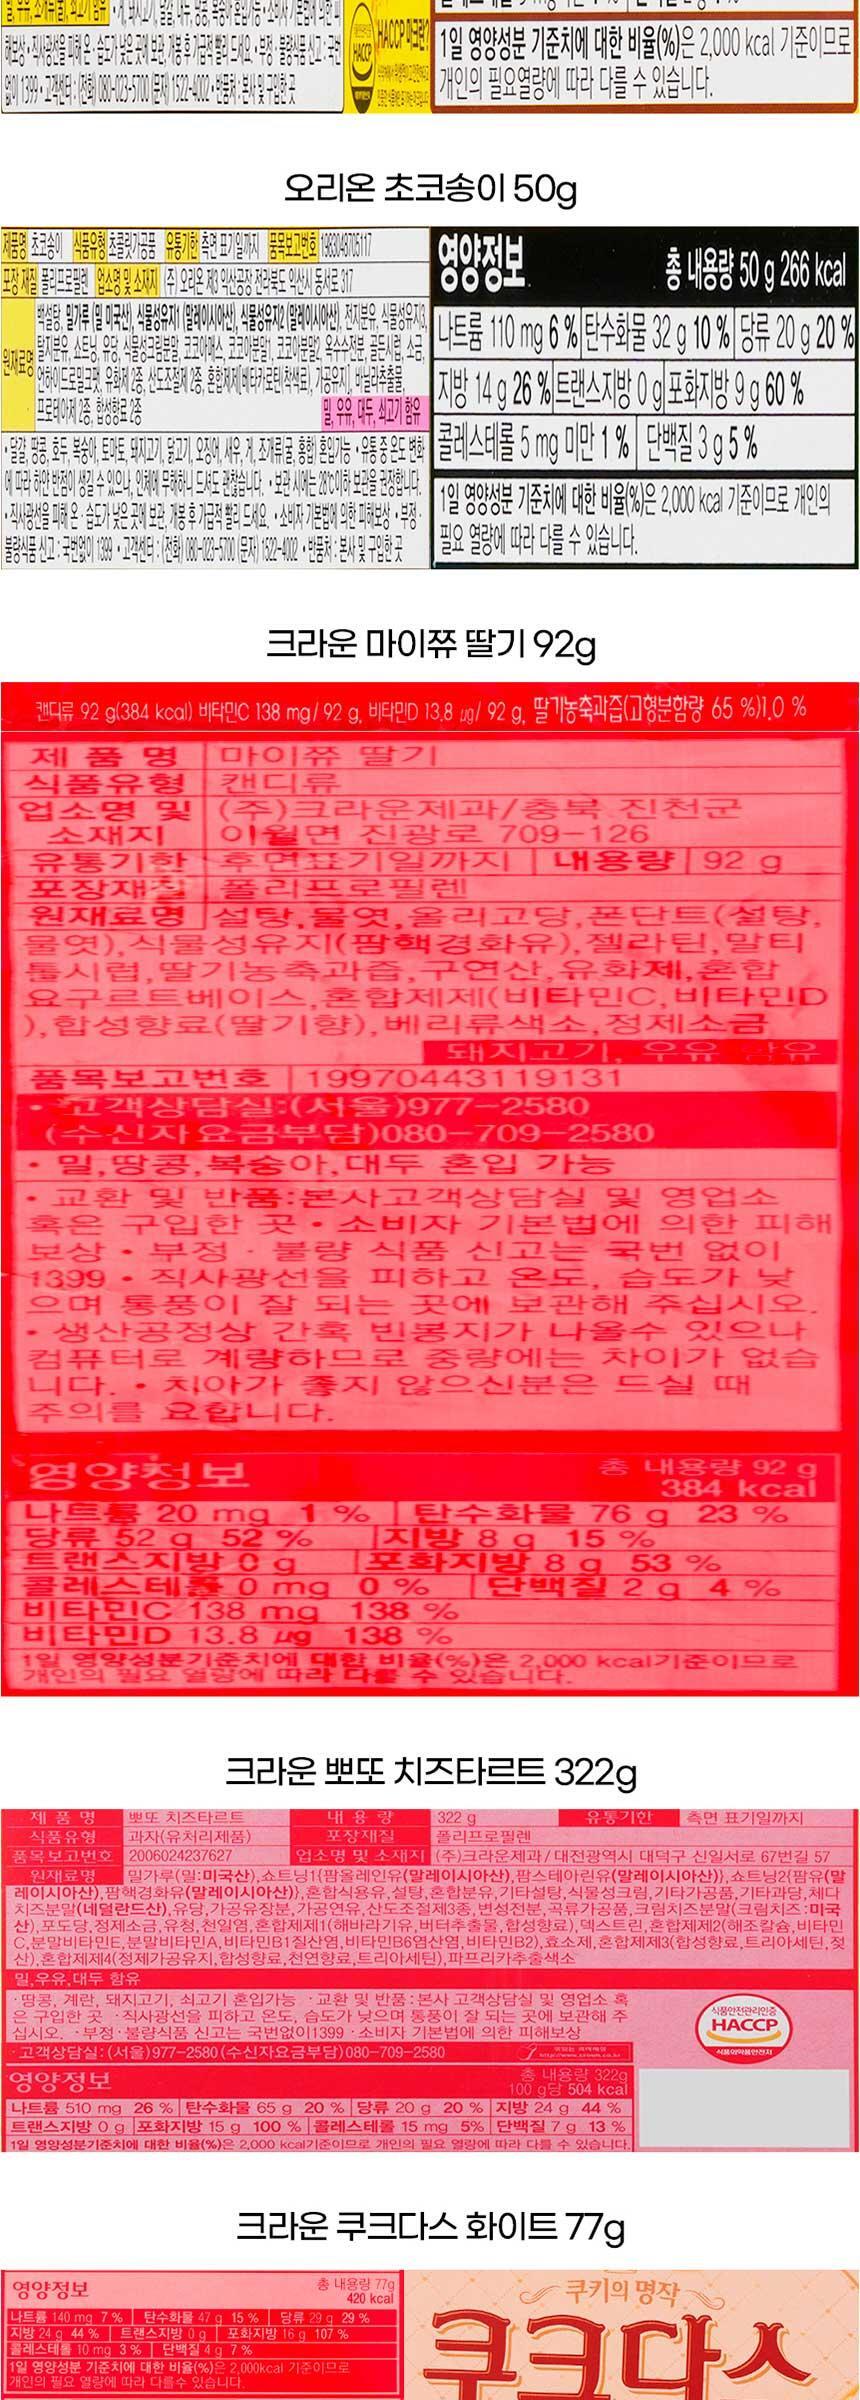 해보상 • 직사광선을 피해 온·습도가 낮은 곳에 보관, 개봉 후 가급적 빨리 드세요. • 부정·불량식품 신고 : 국번
없이 1399 • 고객센터 : (전화) 080-023-5700 (문자) 1522-4002 • 반품처 : 본사 및 구입한 곳
HACCP
HACCP 마크란?
1일 영양성분 기준치에 대한 비율(%)은 2,000 kcal 기준이므로
개인의 필요열량에 따라 다를 수 있습니다.
오리온 초코송이 50g
제품명 초코송이 식품유형 초콜릿가공품 유통기한 측면 표기일까지 품목보고번호 1983048705117
포장 재질 폴리프로필렌 업소명 및 소재지 (주) 오리온 제3 익산공장 전라북도 익산시 동서로 317
원재료명 백설탕, 밀가루 (밀 미국산), 식물성유지1 (말레이시아산), 식물성유지2 (말레이시아산), 전지분유, 식물성유지3,
탈지분유, 쇼트닝, 유당, 식물성크림분말, 코코아매스, 코코아분말1, 코코아분말2, 옥수수전분, 골든시럽, 소금,
언하이드로밀크팻, 유화제 2종, 산도조절제 2종, 혼합제제[베타카로틴(착색료), 가공유지], 바닐라추출물,
프로테아제 2종, 합성향료 2종
밀, 우유, 대두, 쇠고기 함유
• 달걀, 땅콩, 호두, 복숭아, 토마토, 돼지고기, 닭고기, 오징어, 새우, 게, 조개류(굴, 홍합) 혼입가능 • 유통 중 온도 변화
에 따라 하얀 반점이 생길 수 있으나, 인체에 무해하니 드셔도 괜찮습니다. • 보관 시에는 28℃이하 보관을 권장합니다.
• 직사광선을 피해 온·습도가 낮은 곳에 보관, 개봉 후 가급적 빨리 드세요. • 소비자 기본법에 의한 피해보상 • 부정·
불량식품 신고 : 국번없이 1399 • 고객센터 : (전화) 080-023-5700 (문자) 1522-4002 • 반품처 : 본사 및 구입한 곳
영양정보 총 내용량 50 g 266 kcal
나트륨 110 mg 6 % 탄수화물 32 g 10 % 당류 20 g 20 %
지방 14 g 26 % 트랜스지방 0 g 포화지방 9 g 60 %
콜레스테롤 5 mg 미만 1 % 단백질 3 g 5 %
1일 영양성분 기준치에 대한 비율(%)은 2,000 kcal 기준이므로 개인의
필요 열량에 따라 다를 수 있습니다.
크라운 마이쮸 딸기 92g
캔디류 92 g(384 kcal) 비타민C 138 mg/ 92 g, 비타민D 13.8 μg/ 92 g, 딸기농축과즙(고형분함량 65 %)1.0 %
제 품 명 마이쮸 딸기
식품유형 캔디류
업소명 및 (주)크라운제과/충북 진천군
소재지 이월면 진광로 709-126
유통기한 후면표기일까지 내용량 92 g
포장재질 폴리프로필렌
원재료명 설탕,물엿,올리고당,폰단트(설탕,
물엿),식물성유지(팜핵경화유),젤라틴,말티
톨시럽,딸기농축과즙,구연산,유화제,혼합
요구르트베이스,혼합제제(비타민C,비타민D
),합성향료(딸기향),베리류색소,정제소금
돼지고기, 우유 함유
품목보고번호 19970443119131
• 고객상담실:(서울)977-2580
(수신자요금부담)080-709-2580
• 밀,땅콩,복숭아,대두 혼입 가능
• 교환 및 반품:본사고객상담실 및 영업소
혹은 구입한 곳 • 소비자 기본법에 의한 피해
보상 • 부정 · 불량 식품 신고는 국번 없이
1399 • 직사광선을 피하고 온도, 습도가 낮
으며 통풍이 잘 되는 곳에 보관해 주십시오.
• 생산공정상 간혹 빈봉지가 나올수 있으나
컴퓨터로 계량하므로 중량에는 차이가 없습
니다. • 치아가 좋지 않으신분은 드실 때
주의를 요합니다.
영양정보 총 내용량 92 g
384 kcal
나트륨 20 mg 1 % 탄수화물 76 g 23 %
당류 52 g 52 % 지방 8 g 15 %
트랜스지방 0 g 포화지방 8 g 53 %
콜레스테롤 0 mg 0 % 단백질 2 g 4 %
비타민C 138 mg 138 %
비타민D 13.8 μg 138 %
1일 영양성분기준치에 대한 비율(%)은 2,000 kcal기준이므로
개인의 필요 열량에 따라 다를 수 있습니다.
크라운 뽀또 치즈타르트 322g
제 품 명 뽀또 치즈타르트 내 용 량 322 g 유통기한 측면 표기일까지
식품유형 과자(유처리제품) 포장재질 폴리프로필렌
품목보고번호 2006024237627 업소명 및 소재지 (주)크라운제과/대전광역시 대덕구 신일서로 67번길 57
원재료명 밀가루(밀:미국산),쇼트닝1{팜올레인유(말레이시아산),팜스테아린유(말레이시아산)},쇼트닝2{팜유(말
레이시아산),팜핵경화유(말레이시아산)},혼합식용유,설탕,혼합분유,기타설탕,식물성크림,기타가공품,기타과당,체다
치즈분말(네덜란드산),유당,가공유장분,가공연유,산도조절제3종,변성전분,곡류가공품,크림치즈분말(크림치즈:미국
산),포도당,정제소금,유청,천일염,혼합제제1(해바라기유,버터추출물,합성향료),덱스트린,혼합제제2(해조칼슘,비타민
C,분말비타민E,분말비타민A,비타민B1질산염,비타민B6염산염,비타민B2),효소제,혼합제제3(합성향료,트리아세틴,젖
산),혼합제제4(정제가공유지,합성향료,천연향료,트리아세틴),파프리카추출색소
밀,우유,대두 함유
·땅콩, 계란, 돼지고기, 쇠고기 혼입가능 ·교환 및 반품:본사 고객상담실 및 영업소 혹
은 구입한 곳 ·직사광선을 피하고 온도, 습도가 낮으며 통풍이 잘 되는 곳에 보관해 주
십시오. ·부정·불량식품 신고는 국번없이1399 ·소비자 기본법에 의한 피해보상
·고객상담실:(서울)977-2580(수신자요금부담)080-709-2580
식품안전관리인증
HACCP
식품의약품안전처
영양정보 총 내용량 322g
100 g당 504 kcal
나트륨 510 mg 26 % 탄수화물 65 g 20 % 당류 20 g 20 % 지방 24 g 44 %
트랜스지방 0 g 포화지방 15 g 100 % 콜레스테롤 15 mg 5% 단백질 7 g 13 %
1일 영양성분기준치에 대한 비율(%)은 2,000 kcal기준이므로 개인의 필요 열량에 따라 다를 수 있습니다.
크라운 쿠크다스 화이트 77g
영양정보 총 내용량 77g
420 kcal
나트륨 140 mg 7 % 탄수화물 47 g 15 % 당류 29 g 29 %
지방 24 g 44 % 트랜스지방 0 g 포화지방 16 g 107 %
콜레스테롤 10 mg 3 % 단백질 4 g 7 %
1일 영양성분 기준치에 대한 비율(%)은 2,000kcal 기준이므로
개인의 필요 열량에 따라 다를수 있습니다.
쿠키의 명작
쿠크다스